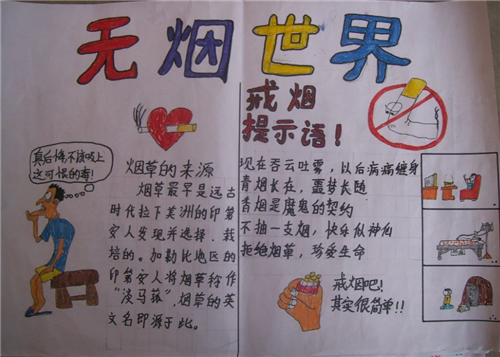 无烟世界
真后悔,不该吸上
这可恨的毒!
烟草的来源
烟草最早是远古
时代拉丁美洲的印第
安人发现并选择、栽
培的。加勒比地区的
印第安人将烟草称作
“淡马菰”,烟草的英
文名即源于此。
戒烟
提示语!
现在吞云吐雾,以后病痛缠身
青烟长在,噩梦长随
香烟是魔鬼的契约
不抽一支烟,快乐似神仙
拒绝烟草,珍爱生命
戒烟吧!
其实很简单!!